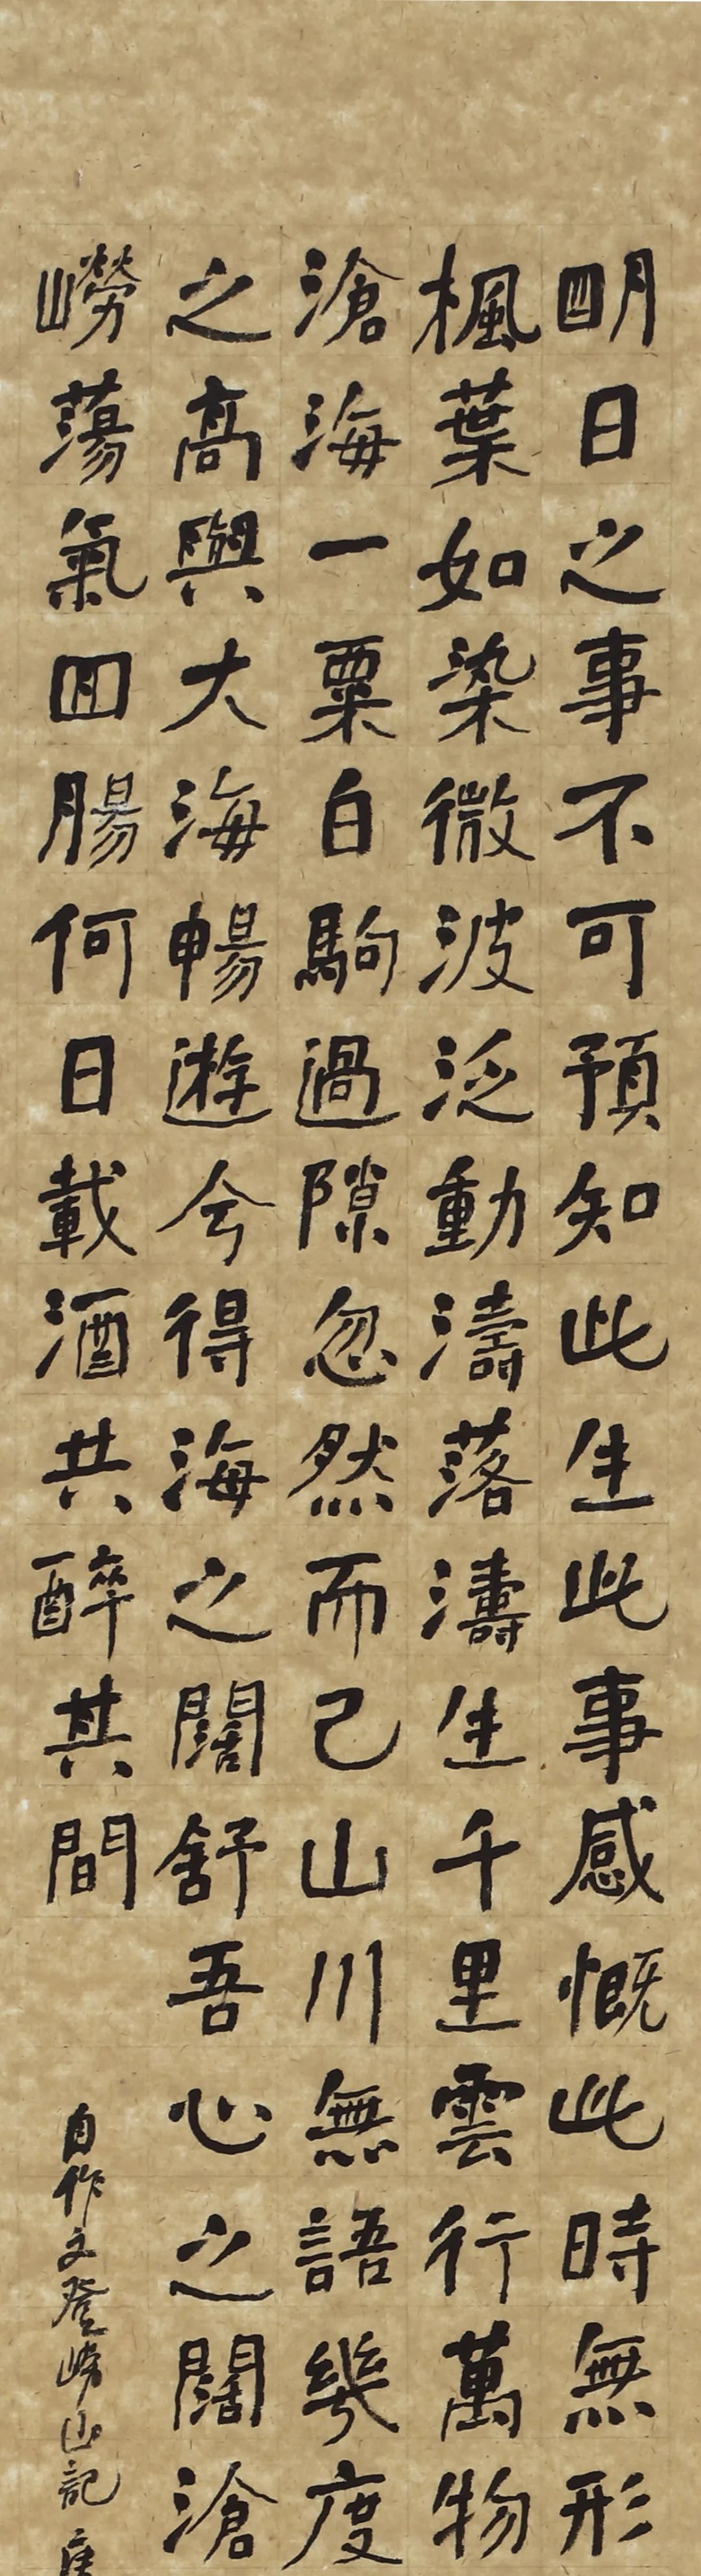 明日之事不可預知此生此事感慨此時無形
楓葉如染微波泛動濤落濤生千里雲行萬物
滄海一粟白駒過隙忽然而已山川無語幾度
之高與大海暢遊兮得海之闊舒吾心之闊滄
嶗蕩氣回腸何日載酒共醉其間
自作文登嶗山記